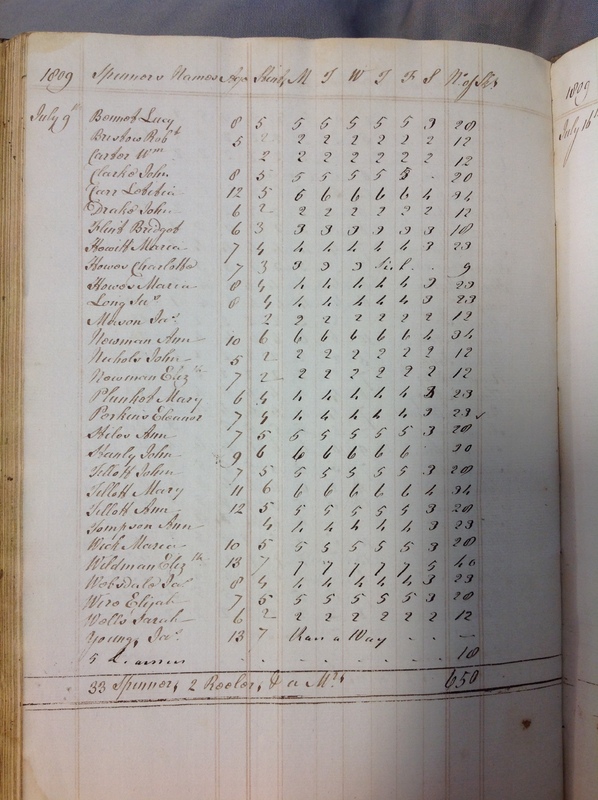 1809 Spinners Names Age Stint M T W T F S No. of Sks
July 9th Bennet Lucy 8 5 5 5 5 5 5 3 28
Bristow Robt 5 2 2 2 2 2 2 2 12
Carter Wm 2 2 2 2 2 2 2 12
Clarke John 8 5 5 5 5 5 5 . 20
Carr Letitia 12 5 6 6 6 6 6 4 34
Drake John 6 2 2 2 2 2 2 2 12
Flint Bridget 6 3 3 3 3 3 3 3 18
Howitt Maria 7 4 4 4 4 4 4 3 23
Howes Charlotte 7 3 3 3 3 Sick . . 9
Howes Maria 8 4 4 4 4 4 4 3 23
Long Jas 8 4 4 4 4 4 4 3 23
Mason Jas 2 2 2 2 2 2 2 12
Newman Ann 10 6 6 6 6 6 6 4 34
Nichols John 5 2 2 2 2 2 2 2 12
Newman Elizth 7 2 2 2 2 2 2 2 12
Plunket Mary 6 4 4 4 4 4 4 3 23
Perkins Eleanor 7 4 4 4 4 4 4 3 23
Stiles Ann 7 5 5 5 5 5 5 3 28
Stanly John 9 6 6 6 6 6 6 30
Tillott John 7 5 5 5 5 5 5 3 28
Tillott Mary 11 6 6 6 6 6 6 4 34
Tillott Ann 12 5 5 5 5 5 5 3 28
Tompson Ann 4 4 4 4 4 4 3 23
Wick Maria 10 5 5 5 5 5 5 3 28
Weldman Elizth 13 7 7 7 7 7 7 5 40
Websdale Jas 8 4 4 4 4 4 4 3 23
Wire Elijah 7 5 5 5 5 5 5 3 28
Wells Sarah 6 2 2 2 2 2 2 2 12
Young Jas 13 7 Ran a Way . . —
5 . . . . . . . 18
33 Spinners, 2 Reelers, & a Mrs 650
1809
July 16th